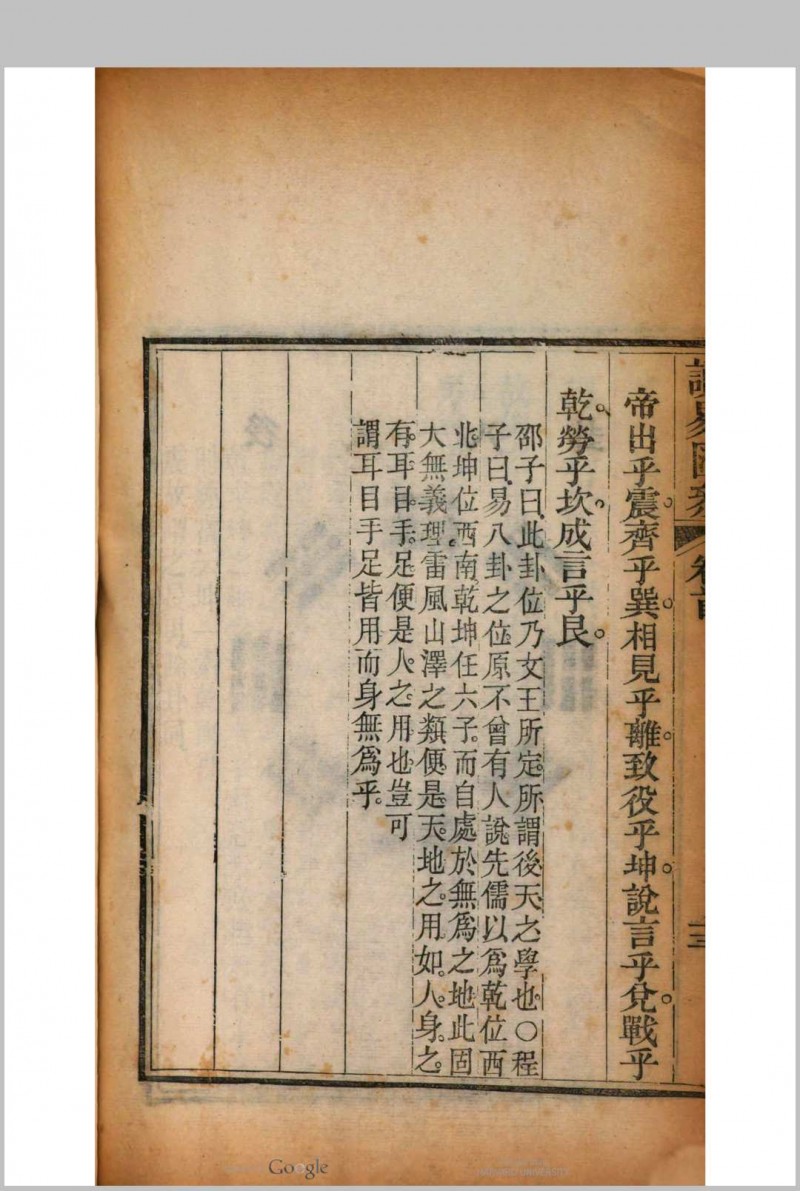 讀易匯參 卷首 三
帝出乎震。齊乎巽。相見乎離。致役乎坤。說言乎兌。戰乎
乾。勞乎坎。成言乎艮。
邵子曰、此卦位乃女王所定。所謂後天之學也。○程
子曰、易八卦之位原不曾有人說先儒以爲乾位西
北坤位西南乾坤任六子。而自處於無爲之地此固
大無義理。雷風山澤之類便是天地之用。如人身之
有耳目手足便是人之用也豈可
謂耳目手足皆用而身無爲乎。
Google